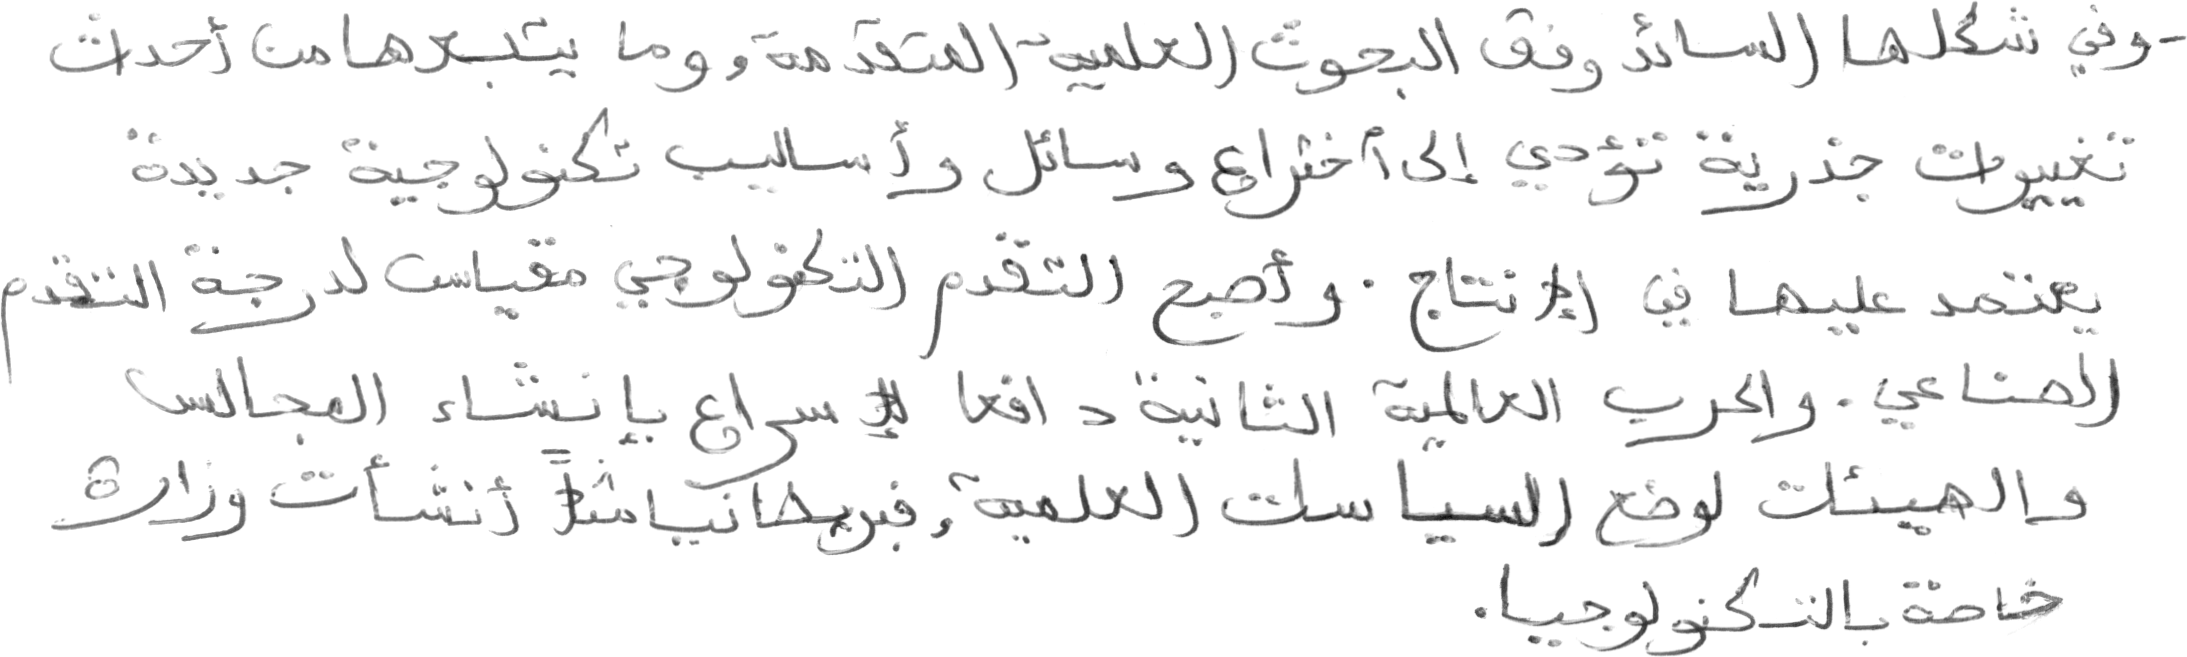 - وفي شكلها السائد وفق البحوث العلمية المتقدمة، وما يتبعها من أحدث
تغييرات جذرية تؤدي إلى أختراع وسائل وأساليب تكنولوجية جديدة
يعتمد عليها في الإنتاج. وأصبح التقدم التكنولوجي مقياس لدرجة التقدم
الصناعي. والحرب العالمية الثانية دافعا لإسراع بإنشاء المجالس
والهيئات لوضع السياسات العلمية، فبريطانيا مثلاً أنشأت وزارة
خاصة بالتكنولوجيا.